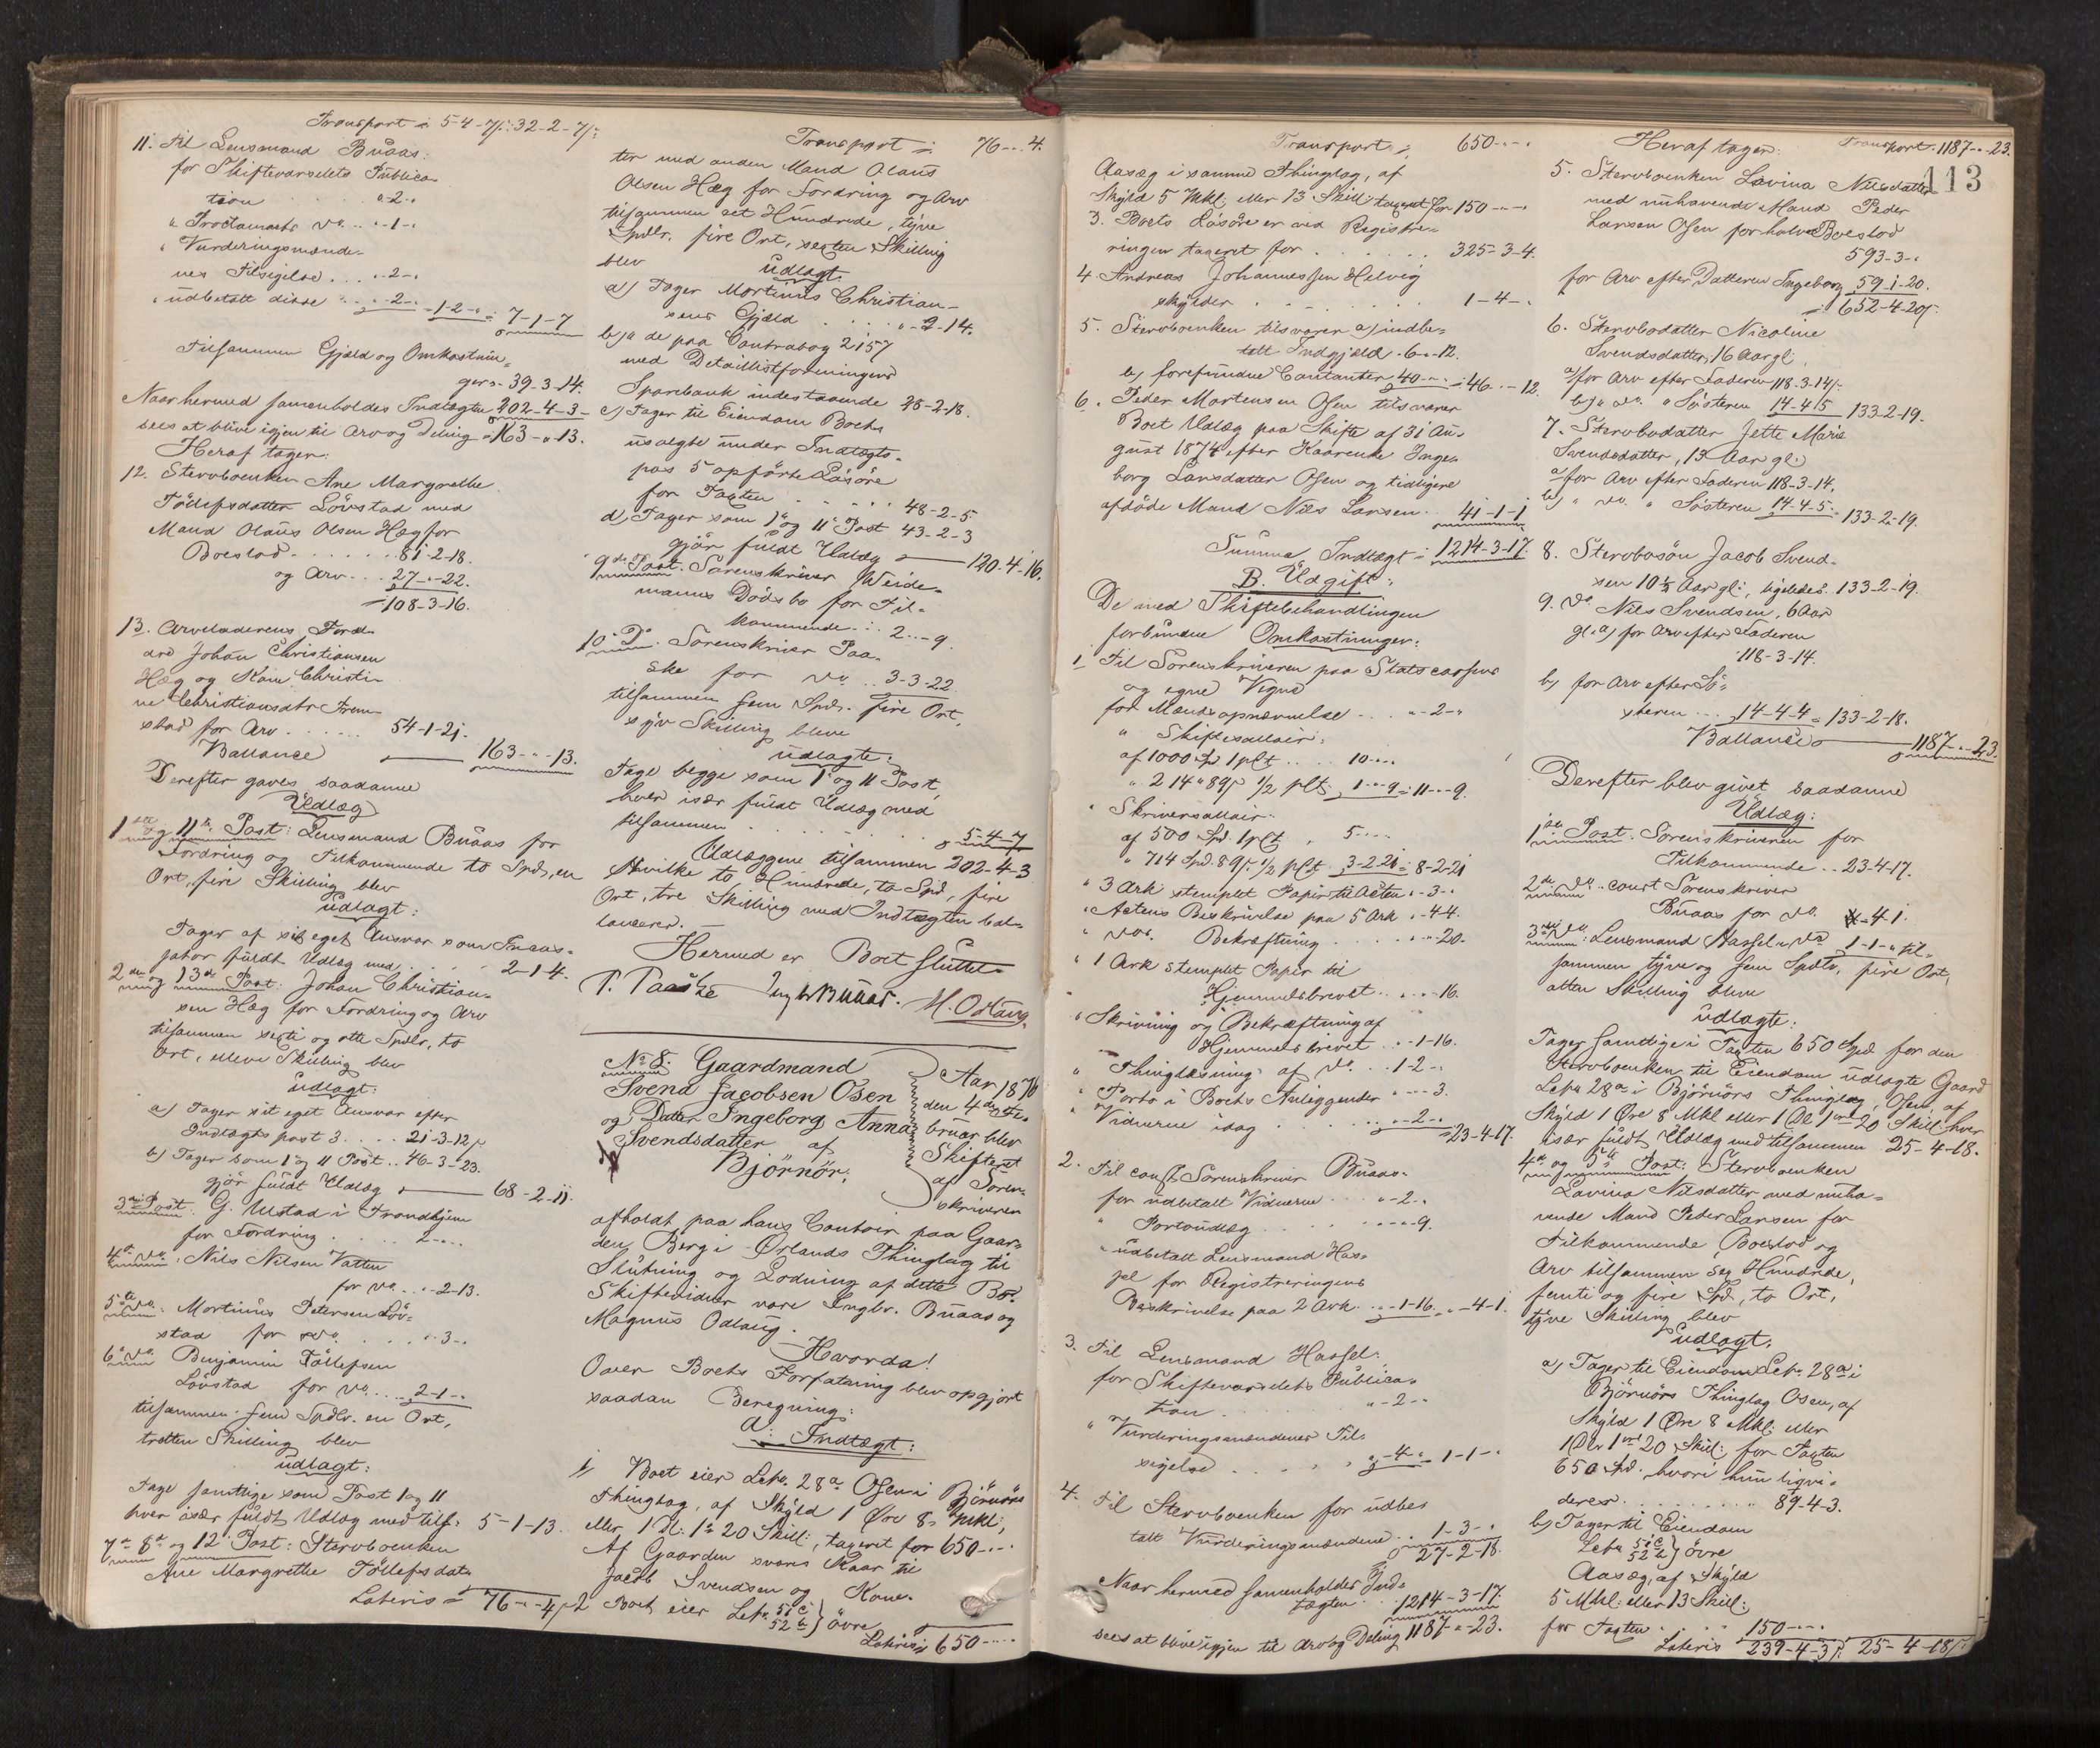 Transport = 5-4-7/: 32-2-7/:
11. Til Lensmand Buaas:
for Skiftevarselets Publica-
tion . . . . "-2-"
" Proclamaets do. . . "-1-"
" Vurderingsmænde-
nes Tilsigelse . . . "-2-"
" udbetalt disse . . . "-2-" -1-2-" = 7-1-7
Tilsammen Gjæld og Omkostnin-
ger = 39-3-14.
Naar hermed sammenholdes Indtægten 202-4-3-
sees at blive igjen til Arv og Deling = 163-"-13.
Heraf tager:
12. Stervboenken Ane Margrethe
Föllefsdatter Lövstad med
Mand Olaus Olsen Hæg for
Boeslod . . . . . . 81-2-18.
og Arv . . . 27-"-22.
=108-3-16.
13. Arveladerens Foræl-
dre Johan Christiansen
Hæg og Kone Christi-
ne Christiansdtr Frem-
stad for Arv . . . . . . 54-1-21.
Ballance 163-"-13.
Derefter gaves saadanne
Udlæg
1ste og 11te Post: Lensmand Buaas for
Fordring og Tilkommende to Spd, en
Ort, fire Skilling blev
udlagt:
Tager af sit eget Ansvar som Incas-
sator fuldt Udlæg med . . . . 2-1-4.
2den og 13de Post: Johan Christian-
sen Hæg for Fordring og Arv
tilsammen sexti og otte Spdlr, to
Ort, elleve Skilling blev
udlagt:
a) Tager sit eget Ansvar efter
Indtægts post 3 . . . . 21-3-12/:
b) Tager som 1 og 11 Post . . 46-3-23.
gjör fuldt Udlæg 68-2-11.
3die Post. G. Ustad i Trondhjem
for Fordring . . . . . 2-"-"
4de do: Nils Nilsen Vatten
for do . . "-2-13.
5te do. Mortinus Petersen Löv-
stad for do . . . . . "-3-"
6te do. Benjamin Föllefsen
Lövstad for do . . . . 2-1-"
tilsammen fem Spdlr. en Ort,
tretten Skilling blev
udlagt:
Tage samtlige som Post 1 og 11
hver især fuldt Udlæg med tils: 5-1-13.
7de 8de og 12 Post: Stervboenken
Ane Margrethe Föllefsdatr
Lateris = 76-"-4/:
Transport = 76-"-4.
ter med anden Mand Olaus
Olsen Hæg for Fordring og Arv
tilsammen eet Hundrede, tyve
Spdlr. fire Ort, sexten Skilling
blev udlagt.
a) Tager Mortinus Christian-
sens Gjæld . . . . "-2-14.
b) " de paa Contrabog 2157
med Detaillistforeningens
Sparebank indestaaende 28-2-18.
c) Tager til Eiendom Boets
usolgte under Indtægts-
post 5 opförte Lösöre
for Taxten . . . . . 48-2-5
d) Tager som 1 og 11 Post 43-2-3
gjör fuldt Udlæg 120-4-16.
9de Post. Sorenskriver Weide-
manns Dödsbo for Til-
kommende . . 2-"-9.
10de Do. Sorenskriver Paa-
ske for do . . 3-3-22
tilsammen fem Spdr. fire Ort,
syv Skilling bleve
udlagte:
Tage begge som 1 og 11 Post,
hver især fuldt Udlæg med
tilsammen . . . . . . . . 5-4-7
Udlæggene tilsammen 202-4-3
Hvilke to Hundrede, to Spd, fire
Ort, tre Skilling med Indtægten bal-
lancerer.
Hermed er Boet sluttet
P. Paaske Ingbr Buaas. M. Odlaug.
No 8. Gaardmand
Svend Jacobsen Osen
og Datter Ingeborg Anna
Svendsdatter af
Björnör:
Aar 1876
den 4de Fe-
bruar blev
Skifteret
af Soren-
skriveren
afholdt paa hans Contoir paa Gaar-
den Berg i Ørlands Thinglag til
Slutning og Lodning af dette Bo.
Skiftevidner vare Ingbr. Buaas og
Magnus Odlaug.
Hvorda!
Over Boets Forfatning blev opgjort
saadan Beregning:
A: Indtægt:
1, Boet eier Lebr. 28a Osen i Björnörs
Thinglag, af Skyld 1 Øre 8 Mkl:,
eller 1 Dl: 1 " 20 Skill:, taxeret for 650-"-"
Af Gaarden svares Kaar til
Jacob Svendsen og Kone.
2 Boet eier Lebr. 51c 52b } övre
Lateris = 650-"-"
Transport = 650-"-"
Aasæg i samme Thinglag, af
Skyld 5 Mkl: eller 13 Skill: taxeret for 150-"-"
3. Boets Lösöre er ved Registre-
ringen taxeret for . . . . . . 325-3-4.
4. Andreas Johannessen Helvig
skylder . . . . . . . 1-4-"
5. Stervboenken tilsvarer a) indbe-
talt Indgjæld "6-"-12.
b) forefundne Contanter 40-"-" = 46-"-12.
6. Peder Mortensen Osen tilsvarer
Boet Udlæg paa Skifte af 31 Au-
gust 1874 efter Kaarenke Inge-
borg Larsdatter Osen og tidligere
afdöde Mand Nils Larsen . . 41-1-1
Summa Indtægt = 1214-3-17.
B. Udgift:
De med Skiftebehandlingen
forbundne Omkostninger:
1 Til Sorenskriveren paa Statscassens
og egne Vegne
for Mændsopnævnelse . . . "-2-"
" Skiftesallair:
af 1000 Sp 1 pCt . . . . 10-"-"
" 214 " 89/: 1/2 pCt; 1-"-9 = 11-"-9.
" Skriversallair:
af 500 Spd. 1 pCt . 5-"-"
" 714 Spd. 89/: 1/2 pCt. 3-2-21 = 8-2-21
" 3 Ark stemplet Papir til Acten "-3-"
" Actens Beskrivelse paa 5 Ark "-4-4.
" dos. Bekræftning . . . . . "-"-20.
" 1 Ark stemplet Papir til
Hjemmelsbrevet . . "-"-16.
" Skrivning og Bekræftning af
Hjemmelsbrevet . . "-1-16.
" Thinglæsning af do. . . 1-2-"
" Porto i Boets Anliggender "-"-3.
" Vidnerne idag . . . . . "-2-" = 23-4-17.
2. Til const. Sorenskriver Buaas.
for udbetalt Vidnerne . . . "-2-"
" Portoudlæg . . . . . "-"-9.
" udbetalt Lensmand Has-
sel for Registreringens
Beskrivelse paa 2 Ark . . "-1-16. = "-4-1.
3. Til Lensmand Hassel:
for Skiftevarselets Publica-
tion . . . . . . "-2-"
" Vurderingsmændenes Til-
sigelse . . . . . "-4-" = 1-1-"
4. Til Stervboenken for udbe-
talt Vurderingsmændene . . 1-3-"
27-2-18.
Naar hermed sammenholdes Ind-
tægten . . 1214-3-17.
sees at blive igjen til Arv og Deling 1187-"-23.
Heraf tager: Transport. 1187-"-23.
113
5. Stervboenken Lavina Nilsdatter
med nuhavende Mand Peder
Larsen Osen for halve Boeslod
593-3-"
for Arv efter Datteren Ingeborg 59-1-20.
= 652-4-20/:
6. Stervbodatter Nicoline
Svendsdatter, 16 Aar gl:
a) for Arv efter Faderen 118-3-14/:
b) " do. " Søsteren 14-4-5 133-2-19.
7. Stervbodatter Jette Marie
Svendsdatter, 13 Aar gl:
a) for Arv efter Faderen 118-3-14.
b) " do. " Søsteren 14-4-5 = 133-2-19.
8. Stervbosön Jacob Svend-
sen 10 1/2 Aar gl:, ligeledes 133-2-19.
9. Do Nils Svendsen, 6 Aar
gl. a) for Arv efter Faderen
118-3-14.
b) for Arv efter Sö-
steren . . . 14-4-4 = 133-2-18.
Ballance 1187-"-23.
Derefter blev givet saadanne
Udlæg:
1ste Post. Sorenskriveren for
Tilkommende . . 23-4-17.
2den do. const Sorenskriver
Buaas for do. "-4-1.
3die do: Lensmand Hassel " do 1-1-" til-
sammen tyve og fem Spdlr, fire Ort,
atten Skilling bleve
udlagte:
Tager samtlige i Taxten 650 Spd for den
Stervboenken til Eiendom udlagte Gaard
Lebr 28a i Björnörs Thinglag, Osen, af
Skyld 1 Øre 8 Mkl eller 1 Dl 1 ort 20 Skill hver
især fuldt Udlæg med tilsammen 25-4-18.
4de og 5te Post: Stervboenken
Lavina Nilsdatter med nuha-
vende Mand Peder Larsen for
Tilkommende Boeslod og
Arv tilsammen sex Hundrede,
femti og fire Spd, to Ort,
tyve Skilling blev
udlagt.
a) Tager til Eiendom Lebr. 28a i
Björnörs Thinglag Osen, af
Skyld 1 Øre 8 Mkl: eller
1 Dlr 1 ort 20 Skill: for Taxten
650 Spd. hvori hun liqvi-
deres . . . . . . . . . 89-4-3.
b) Tager til Eiendom
Lebr 51c 52b } övre
Aasæg, af Skyld
5 Mkl: eller 13 Skill:
for Taxten . . . . 150-"-"
Lateris 239-4-3/: 25-4-18/: